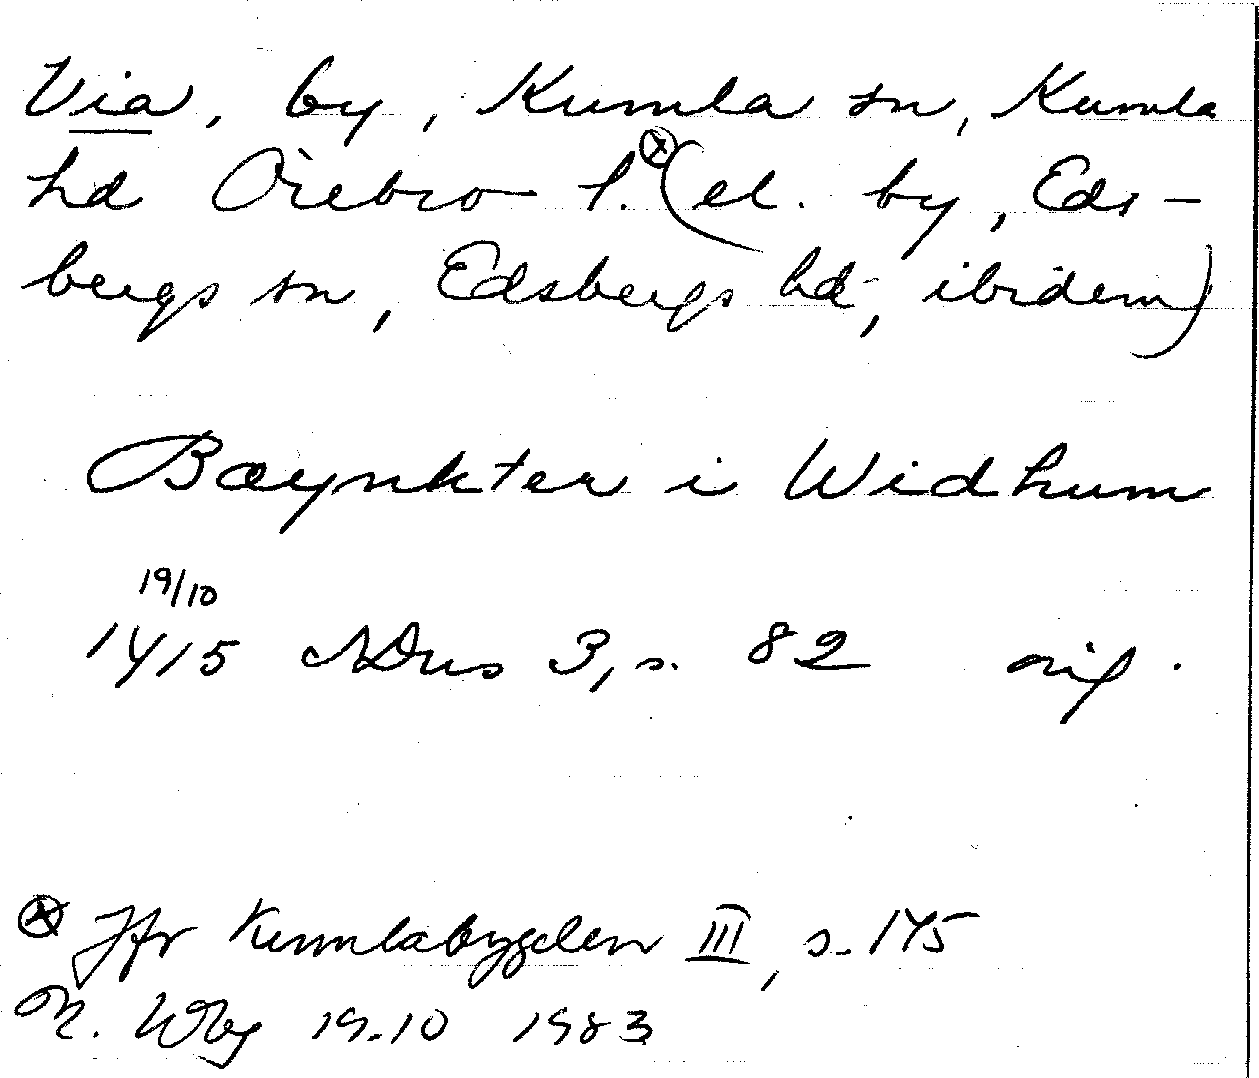 Via, by, Kumla sn, Kumla
hd Örebro l. ⓧ (el. by, Eds-
bergs sn, Edsbergs hd, ibidem)
Bæynkter i Widhum
19/10
1415 SDns 3, s. 82 orig.
ⓧ Jfr Kumlabygden III, s. 145
N. Wbg 19.10 1983